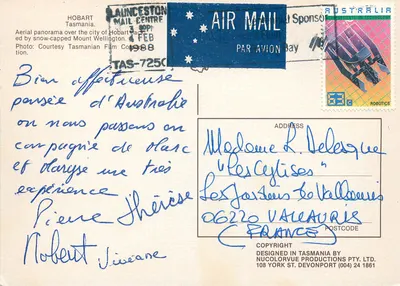 HOBART
Tasmania.
Aerial panorama over the city of Hobart
ed by snow-capped Mount Wellington.
Photo: Courtesy Tasmanian Film
tion.
LAUNCESTON
MAIL CENTRE
FEB
1988
TAS-7250
AIR MAIL
PAR AVION
Sponsor
Bay
AUSTRALIA
53c
ROBOTICS
Bien affectueuse
pensée d'Australie
où nous passons en
compagnie de Marc
et Maryse une très
expérience
Pierre Thérèse
Robert Viviane
ADDRESS
Madame L. Delesque
"Les Eglises"
Les Jardins de Vallauris
06220 VALLAURIS
(FRANCE)
POSTCODE
COPYRIGHT
DESIGNED IN TASMANIA BY
NUCOLORVUE PRODUCTIONS PTY. LTD.
108 YORK ST, DEVONPORT (004) 24 1861